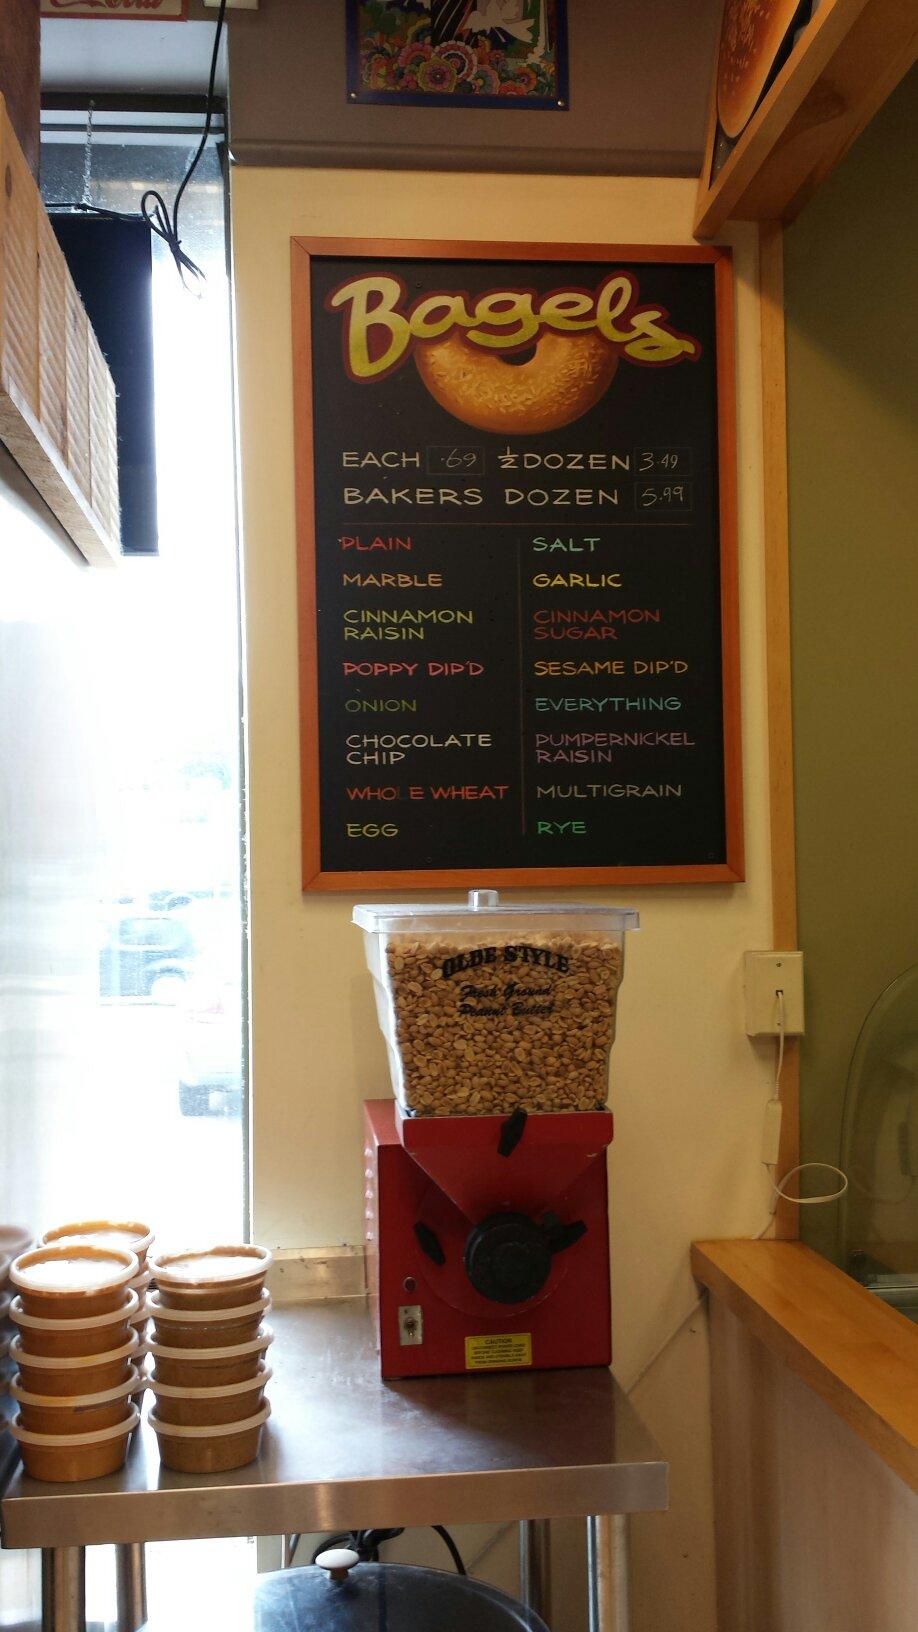 Bagels
EACH .69 ½ DOZEN 3.49
BAKERS DOZEN 5.99
PLAIN
MARBLE
CINNAMON
RAISIN
POPPY DIP'D
ONION
CHOCOLATE
CHIP
WHOLE WHEAT
EGG
SALT
GARLIC
CINNAMON
SUGAR
SESAME DIP'D
EVERYTHING
PUMPERNICKEL
RAISIN
MULTIGRAIN
RYE
OLDE STYLE
Fresh Ground
Peanut Butter
CAUTION